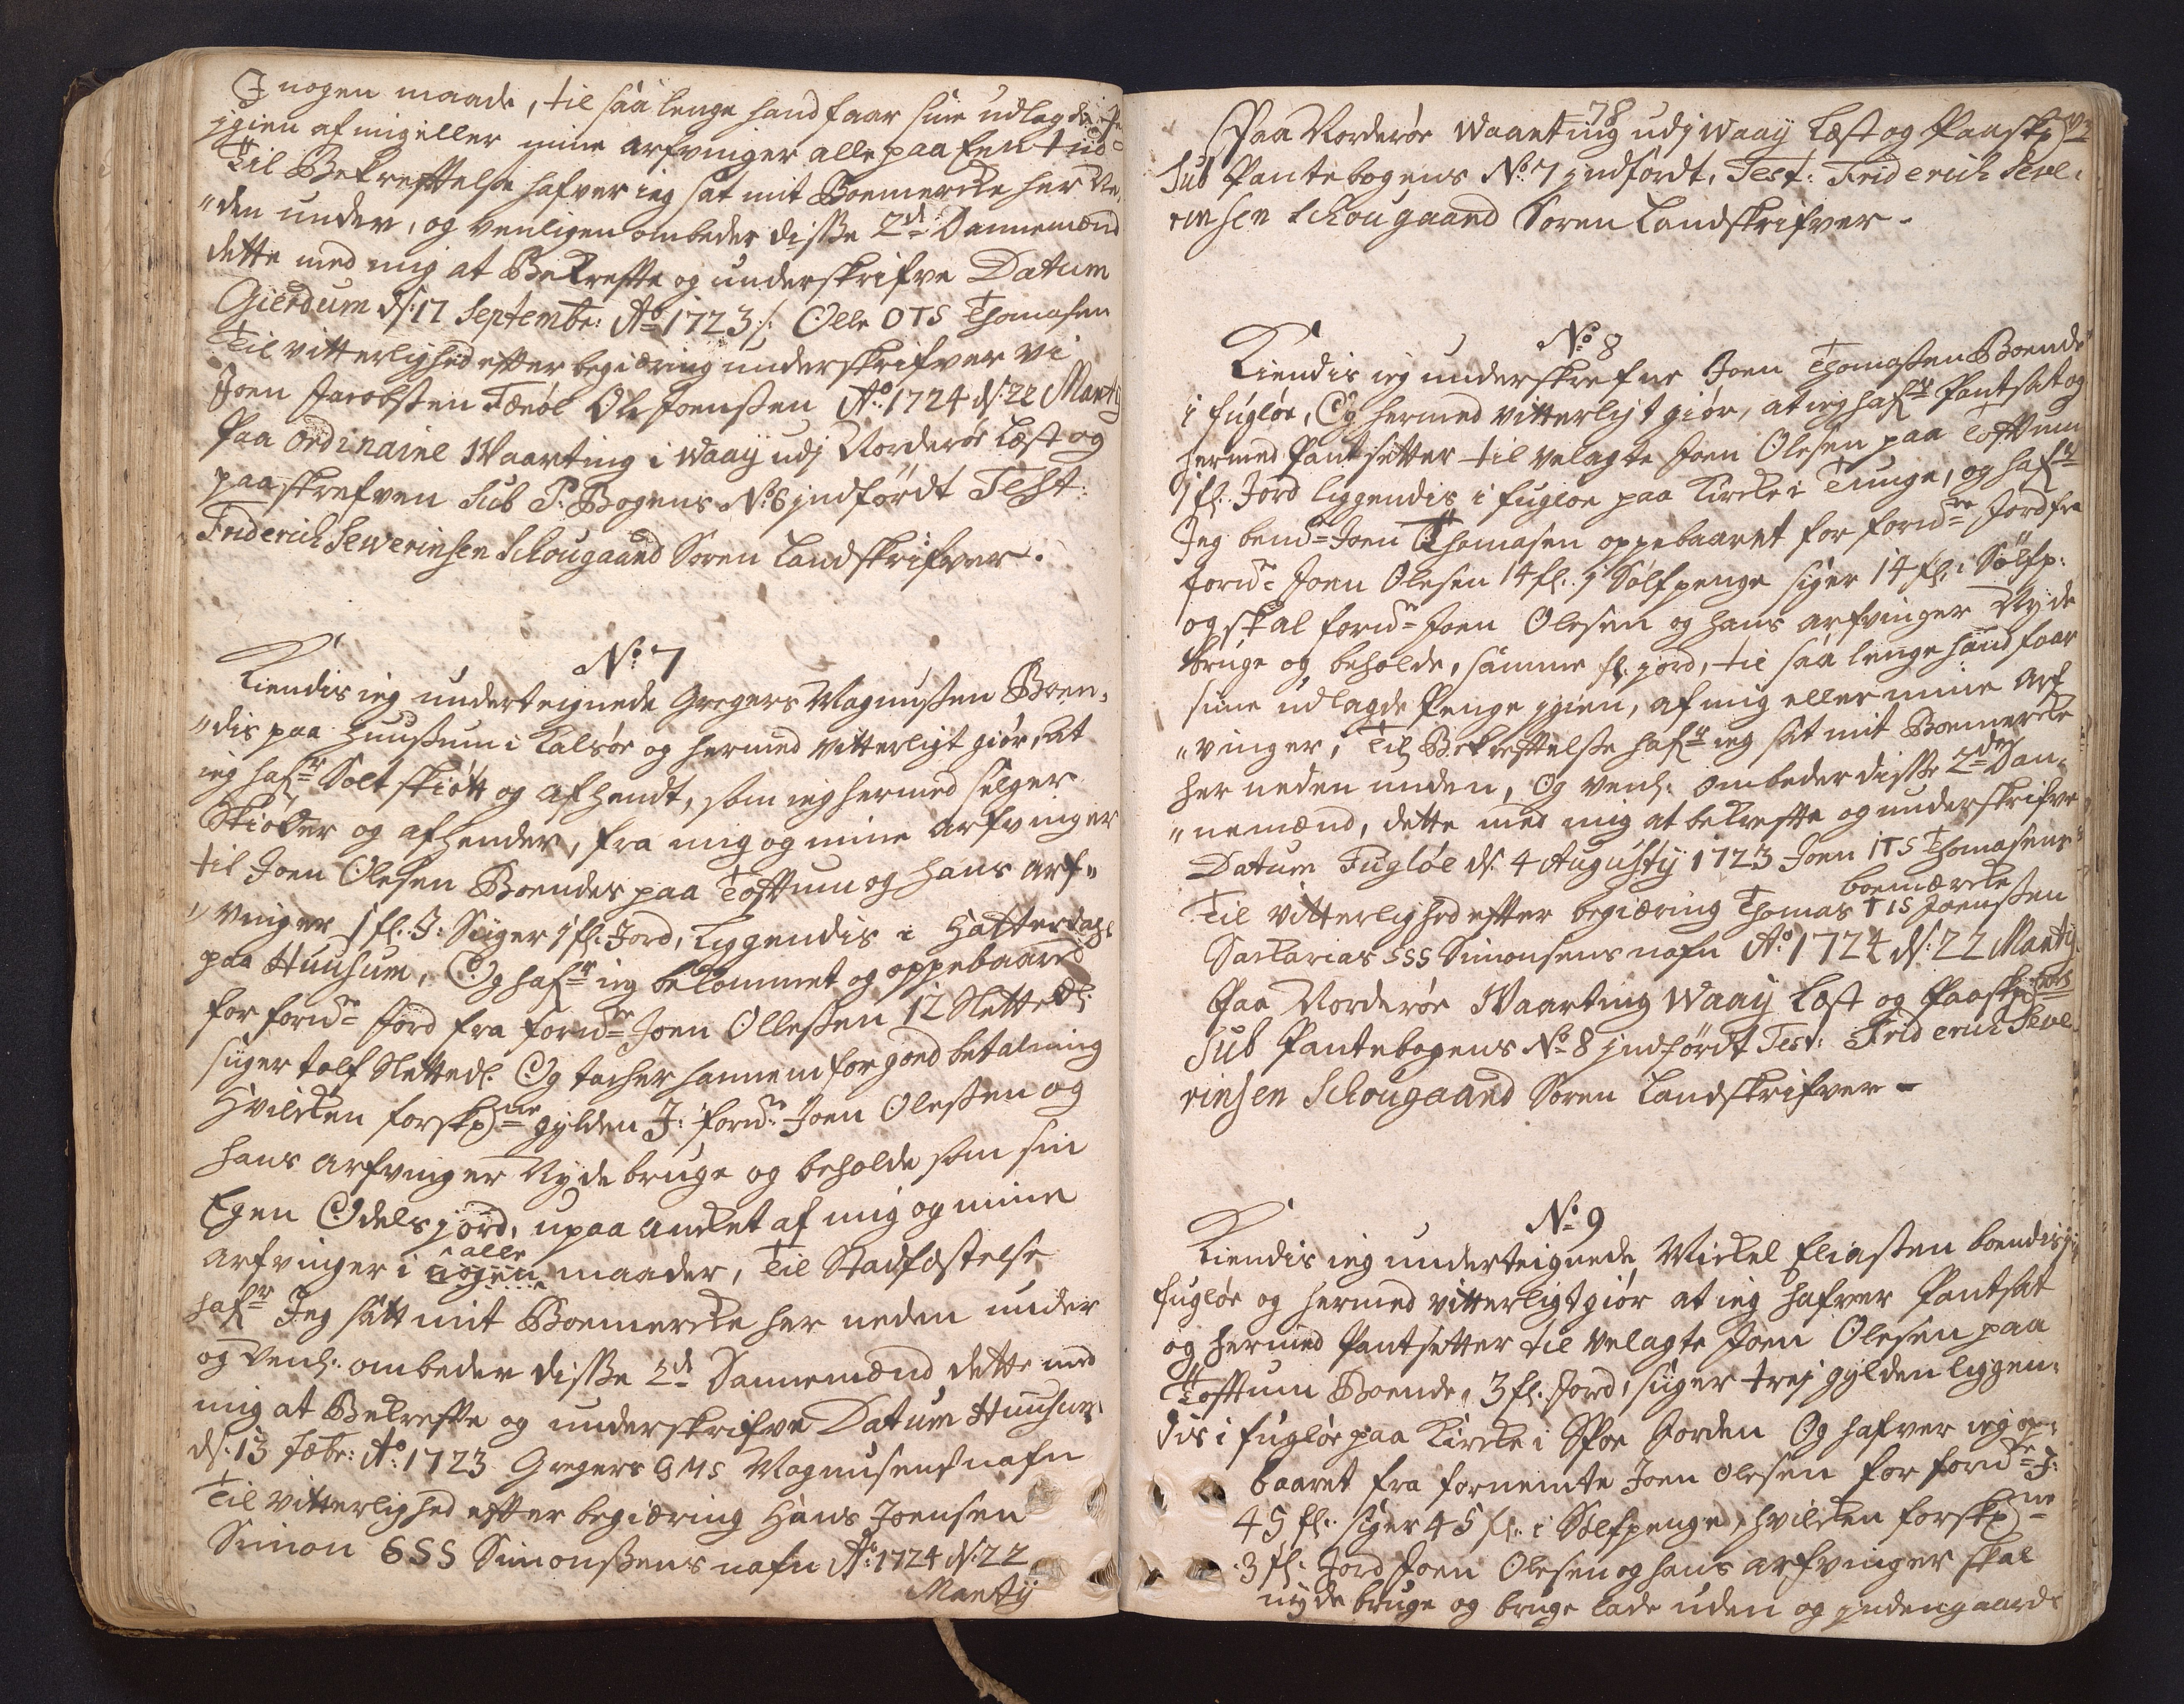 I nogen maade, til saa lenge hand faar sine udlagde
igien af mig eller mine arfvinger alle paa Een tid
Til Bekreftelse hafver ieg sat mit Boemercke her Ne„
„den under, og venligen ombeder disße 2de Dannemænd
dette med mig at Bekrefte og underskrifve Datum
Gierdum d: 17 Septembr: Ao 1723 /: Olle OTS Thomasen
Til vitterlighed efter begiæring underskrifver vi
Joen Jacobsßen Ole Joenßen Ao: 1724 d: 22 Marty
Paa ordinaire Waarting i Waaÿ udj Norderøe Læst og
paaskrefven Sub P: Bogens No: 6 indførdt Test:
Friderich Sewerinsen Schougaard Soren Landskrifver.
No: 7
Kiendis ieg underteignede Gregers Magnusßen Boen„
„dis paa Huusßum i Kalsøe og hermed vitterligt giør, at
ieg hafr Solt skiøtt og afhendt, som ieg hermed selger
Skiøder og afhender, fra mig og mine arfvinger
til Joen Olesen Boendes paa Tofttum og hans arf„
„vinger 1 fl. J: Siiger 1 fl. Jord, Liggendis i Hatterdahl
paa Huusum, Og hafr ieg bekommet og oppebaaret
for forndte Jord fra forndte Joen Ollesßen 12 Slettedl:
siiger tolf Slettedl. Og tacher hannem for goed betalning
Hvilcken forskrne gylden J: forndte Joen Olesßen og
hans arfvinger Nyde bruge og beholde som sin
Egen Odelsjord, upaa ancket af mig og mine
alle
arfvinger i nogen maader, Til Stadfæstelse
hafr Jeg satt mit Boemercke her neden under
og venl: ombeder disße 2de Dannemænd dette med
mig at Bekrefte og underskrifve Datum Huusum
d: 13 febr: Ao: 1723 Gregers GMS Magnusens nafn
Til vitterlighed efter begiæring Hans Joensen
Simon SSS Simonßens nafn Ao: 1724 d: 22
Marty
78
Paa Norderøe Waarting udj Waaÿ Læst og Paaskr
Sub Pantebogens No: 7 indførdt, Test: Friderich Seve„
rinsen Schougaard Soren Landskrifver -
No: 8
Kiendis ieg underskrefne Joen Thomasßen Boende
i fugløe, Og hermed vitterligt giør, at ieg hafr Pantsat og
hermed Pantsetter til velagte Joen Olesen paa Tofttum
1 fl. Jord liggendis i fugløe paa Kircke i Tunge, og hafr
Jeg bemte Joen Thomasen oppebaaret for forndte Jord fra
forndte Joen Olesen 14 fl. i Sølfpenge siger 14 fl. i Sølfp:
og skal forndte Joen Olesen og hans arfvinger Nyde
bruge og beholde, samme fl. jord, til saa lenge hand faar
sine udlagde Penge igien, af mig eller mine arf
„vinger, Til Bekreftelße hafr ieg sat mit Boemercke
her neden unden, Og venl: ombeder disße 2de Dan„
„nemænd, dette med mig at bekrefte og underskrifve
Datum Fugløe d: 4 Augustÿ 1723 Joen ITS Thomasens
boemærcke
Til vitterlighed efter begiæring Thomas TIS Joensßen
Sackarias SSS Simonsens nafn Ao: 1724 d: 22 Marty
Paa Norderøe Waarting Waaÿ Læst og Paaskr
Sub Pantebogens No: 8 indførdt Test: Friderich Seve„
rinsen Schougaard Soren Landskrifver -
No: 9
Kiendis ieg underteignede Mickel Eliasßen boendis i
fugløe og hermed vitterligt giør at ieg hafver Pantsat
og hermed Pantsetter til velagte Joen Olesen paa
Tofttum Boende, 3 fl. Jord, siiger trej gylden liggen„
dis i fugløe paa Kircke i Jorden Og hafver ieg op„
baaret fra fornemte Joen Olesen for forndte J:
45 fl. siger 45 fl. i Sølfpenge, hvilcken forskrne
3 fl. Jord Joen Olesen og hans arfvinger skal
nyde bruge og bruge lade uden og indengaards